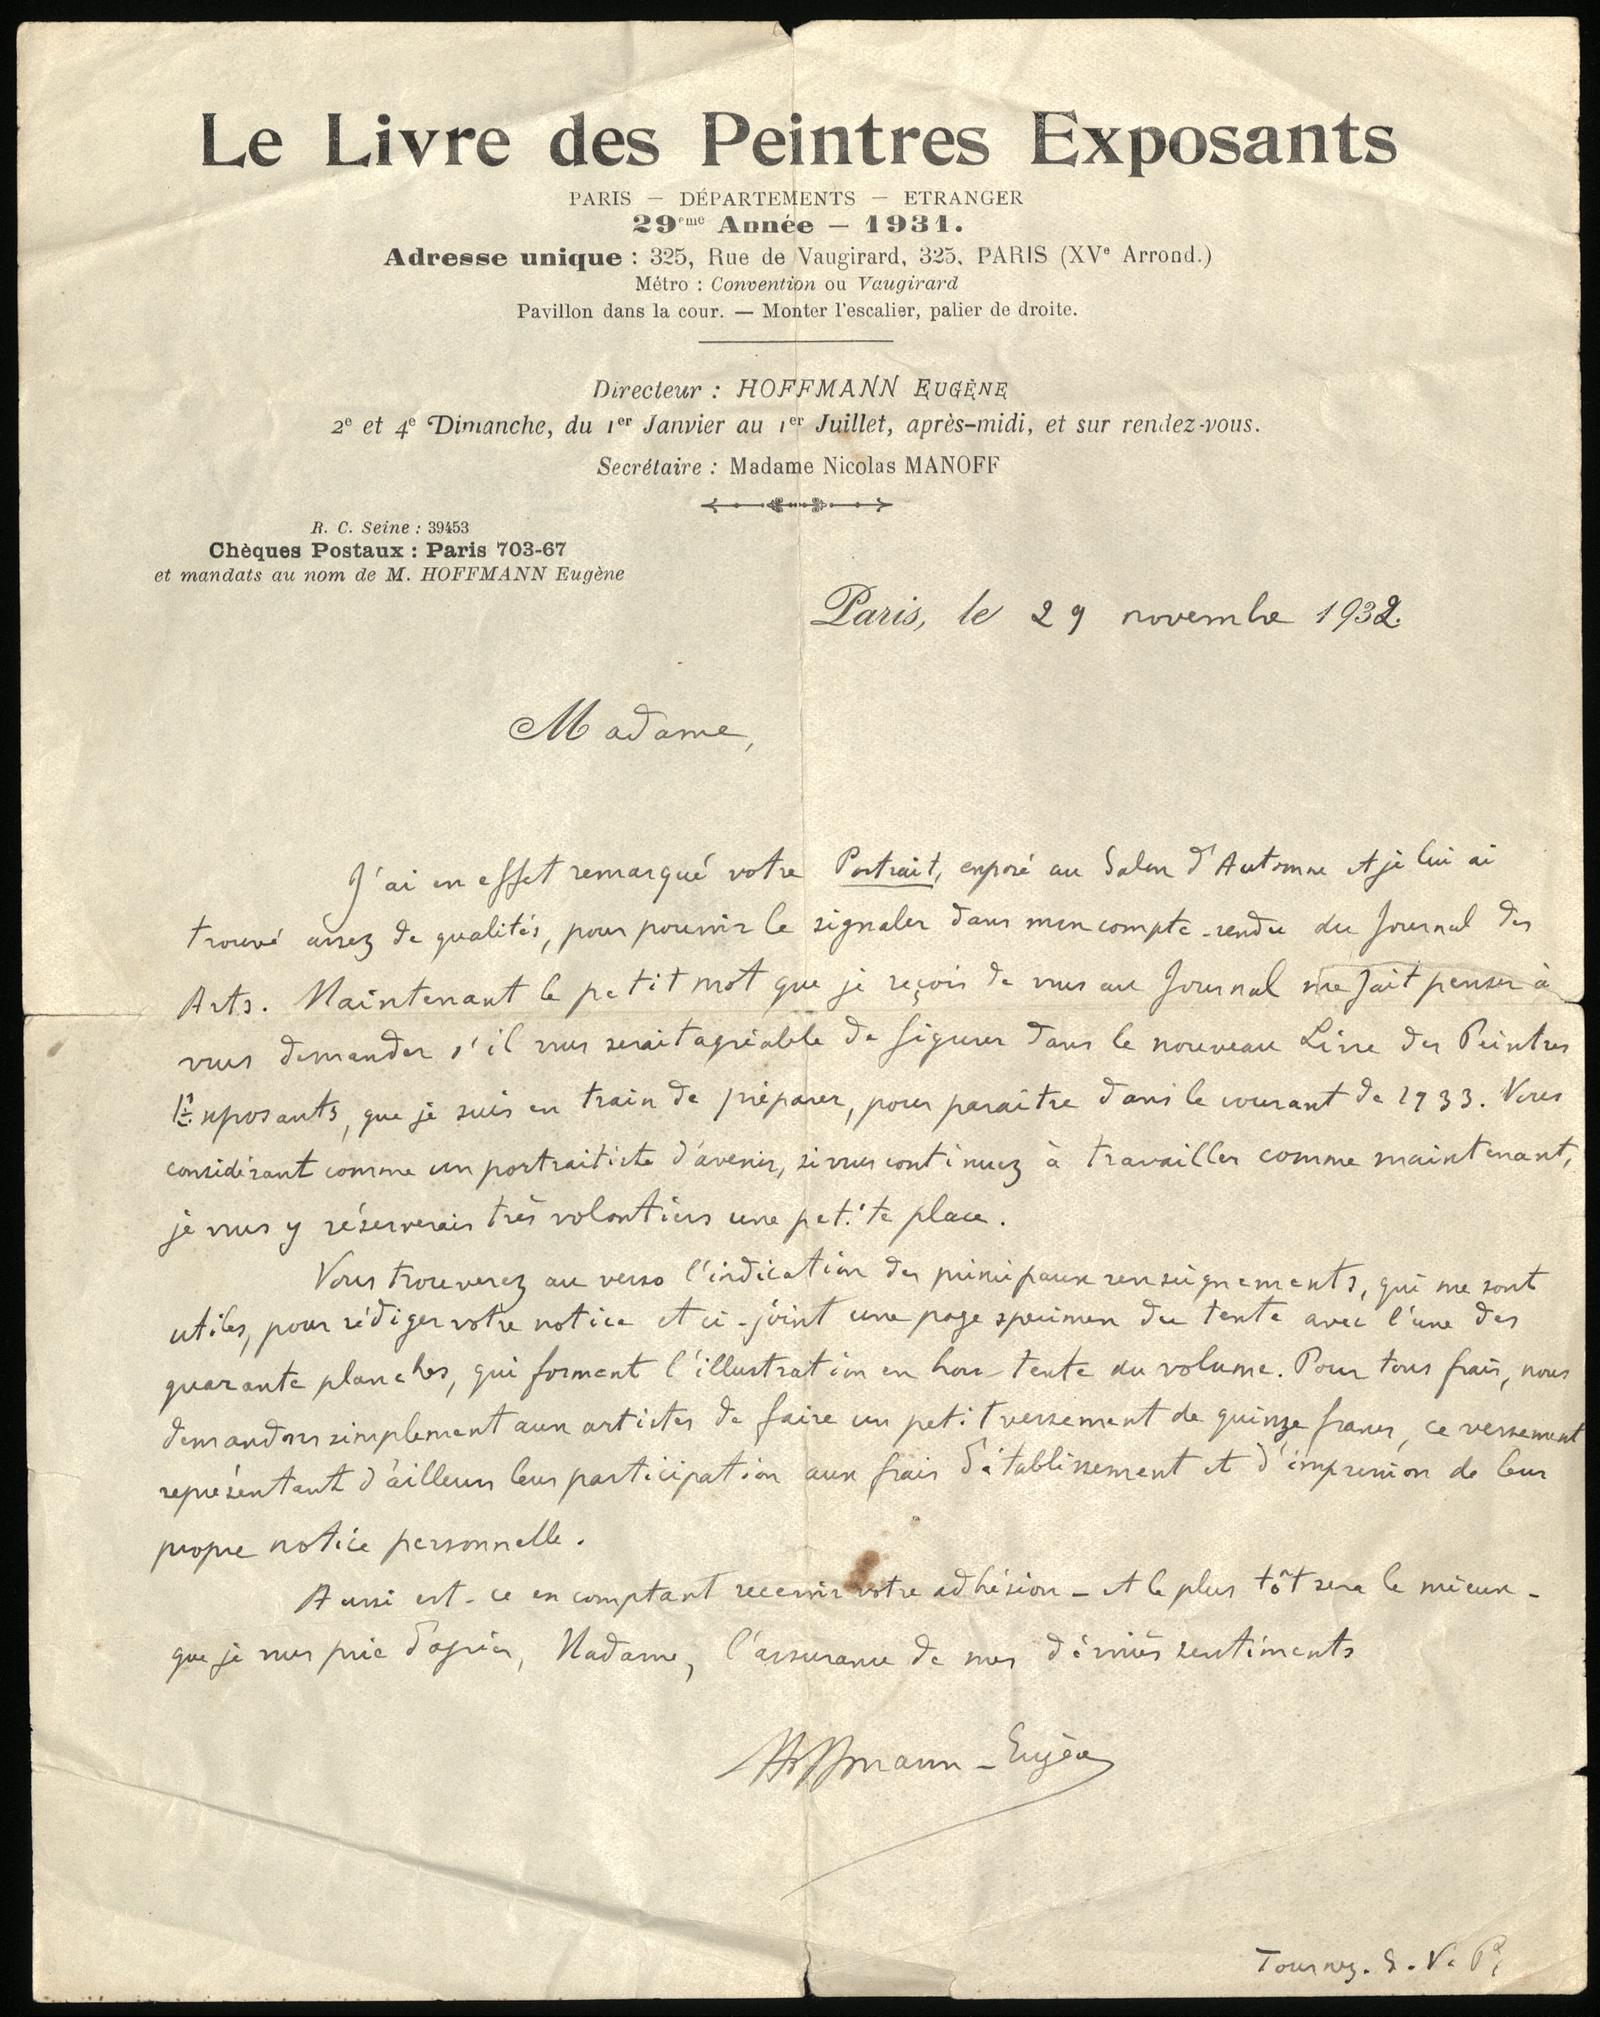 Le Livre des Peintres Exposants
PARIS — DÉPARTEMENTS — ETRANGER
29eme Année — 1931.
Adresse unique : 325, Rue de Vaugirard, 325, PARIS (XVe Arrond.)
Métro : Convention ou Vaugirard
Pavillon dans la cour. — Monter l'escalier, palier de droite.
Directeur : HOFFMANN EUGÈNE
2e et 4e Dimanche, du 1er Janvier au 1er Juillet, après-midi, et sur rendez-vous.
Secrétaire : Madame Nicolas MANOFF
R. C. Seine : 39453
Chèques Postaux : Paris 703-67
et mandats au nom de M. HOFFMANN Eugène
Paris, le 29 novembre 1932.
Madame,
J'ai en effet remarqué votre Portrait, exposé au Salon d'Automne et je lui ai
trouvé assez de qualités, pour pouvoir le signaler dans mon compte-rendu du Journal des
Arts. Maintenant le petit mot que je reçois de vous au Journal me fait penser à
vous demander s'il vous serait agréable de figurer dans le nouveau Livre des Peintres
Exposants, que je suis en train de préparer, pour paraître dans le courant de 1933. Vous
considérant comme un portraitiste d'avenir, si vous continuez à travailler comme maintenant,
je vous y réserverais très volontiers une petite place.
Vous trouverez au verso l'indication des principaux renseignements, qui me sont
utiles, pour rédiger votre notice et ci-joint une page specimen du texte avec l'une des
quarante planches, qui forment l'illustration en hors-texte du volume. Pour tous frais, nous
demandons simplement aux artistes de faire un petit versement de quinze francs, ce versement
représentant d'ailleurs leur participation aux frais d'établissement et d'impression de leur
propre notice personnelle.
Aussi est-ce en comptant recevoir votre adhésion - et le plus tôt sera le mieux -
que je vous prie d'agréer, Madame, l'assurance de mes dévoués sentiments
Hoffmann-Eugène
Tournez. S. V. P.